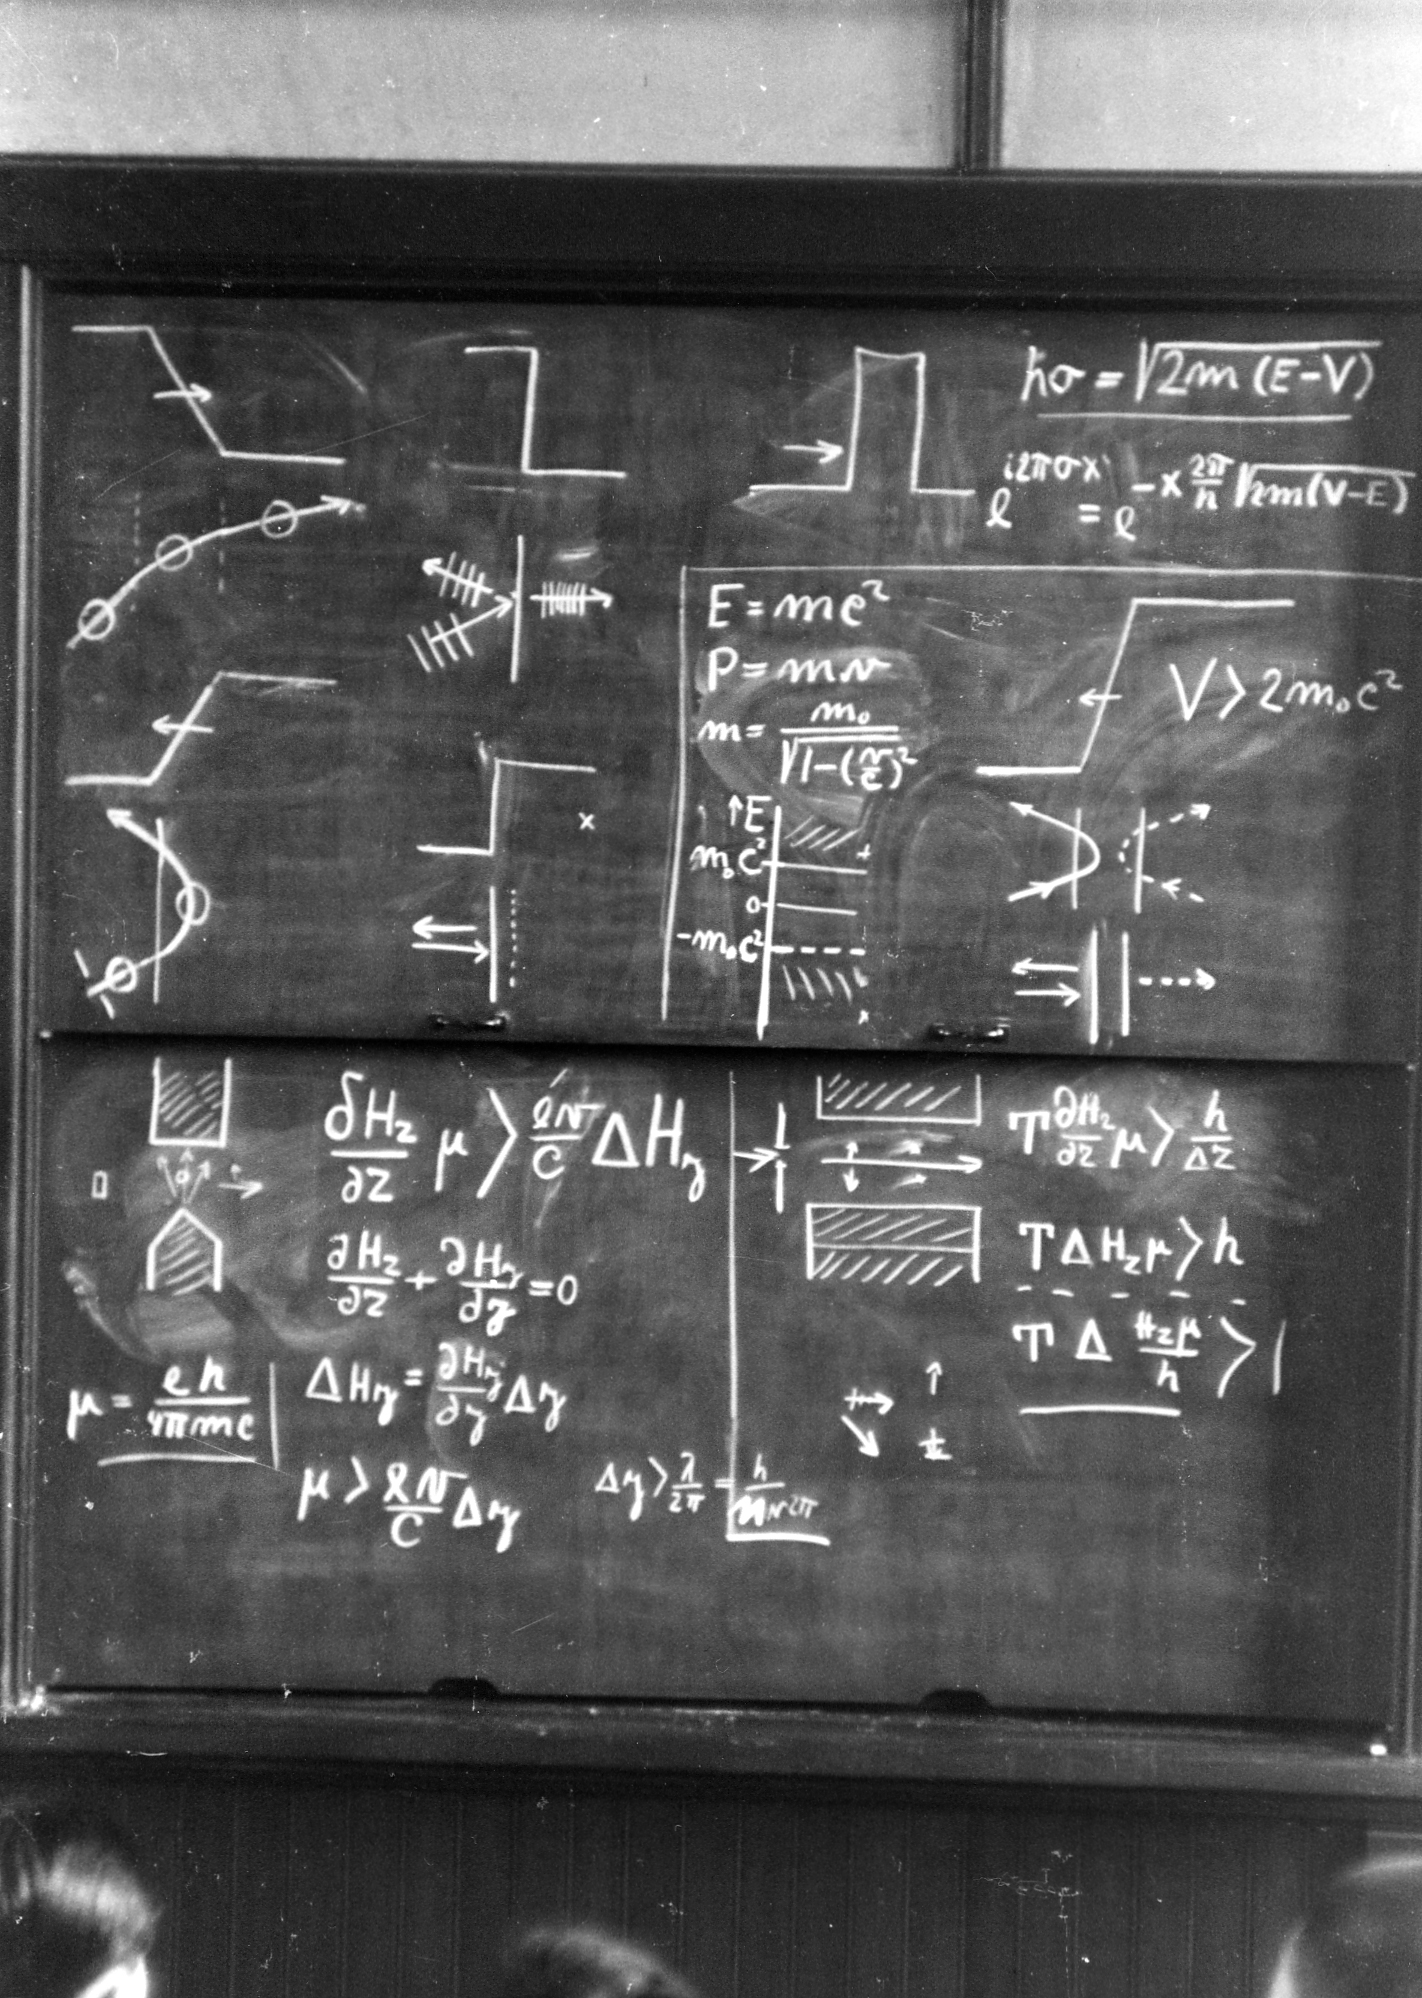 hσ = √2m(E-V)
e^i2πσx = e^-x 2π/h √2m(V-E)
E = mc²
P = mv
m = m₀/√1-(v/c)²
V > 2m₀c²
↑E
m₀c²
0
-m₀c²
∂Hz/∂z μ > ev/c ΔHy
∂Hz/∂z + ∂Hy/∂y = 0
μ = eh/4πmc
ΔHy = ∂Hy/∂y Δy
μ > ev/c Δy
Δy > λ/2π = h/mv2π
T ∂Hz/∂z μ > h/Δz
T Δ Hz μ > h
T Δ Hzμ/h > 1